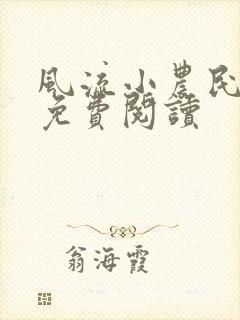 風流小農民
免費閱讀
翁海霞